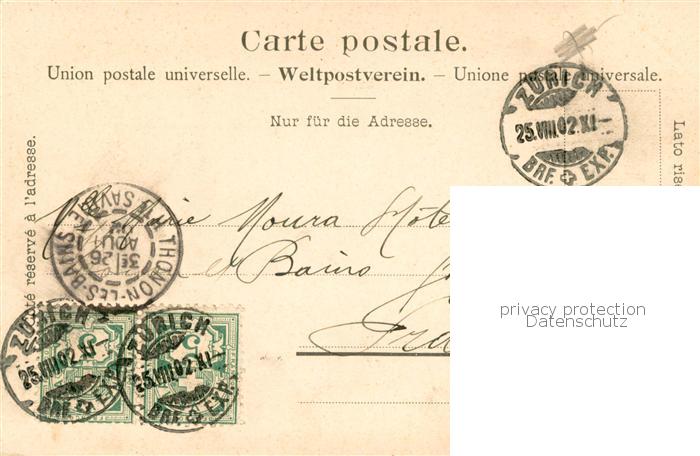 Carte postale.
Union postale universelle. – Weltpostverein. – Unione postale universale.
Nur für die Adresse.
ZÜRICH
25.VIII.02.XI–
BRF. EXP.
réservé à l'adresse.
Lato rise
THONON-LES-BAINS
3E 26
AOUT
02
Marie Moura Hôte
Bains
Fra
privacy protection
Datenschutz
ZÜRICH
25.VIII.02.XI–
BRF. EXP.
ZÜRICH
25.VIII.02.XI–
BRF. EXP.